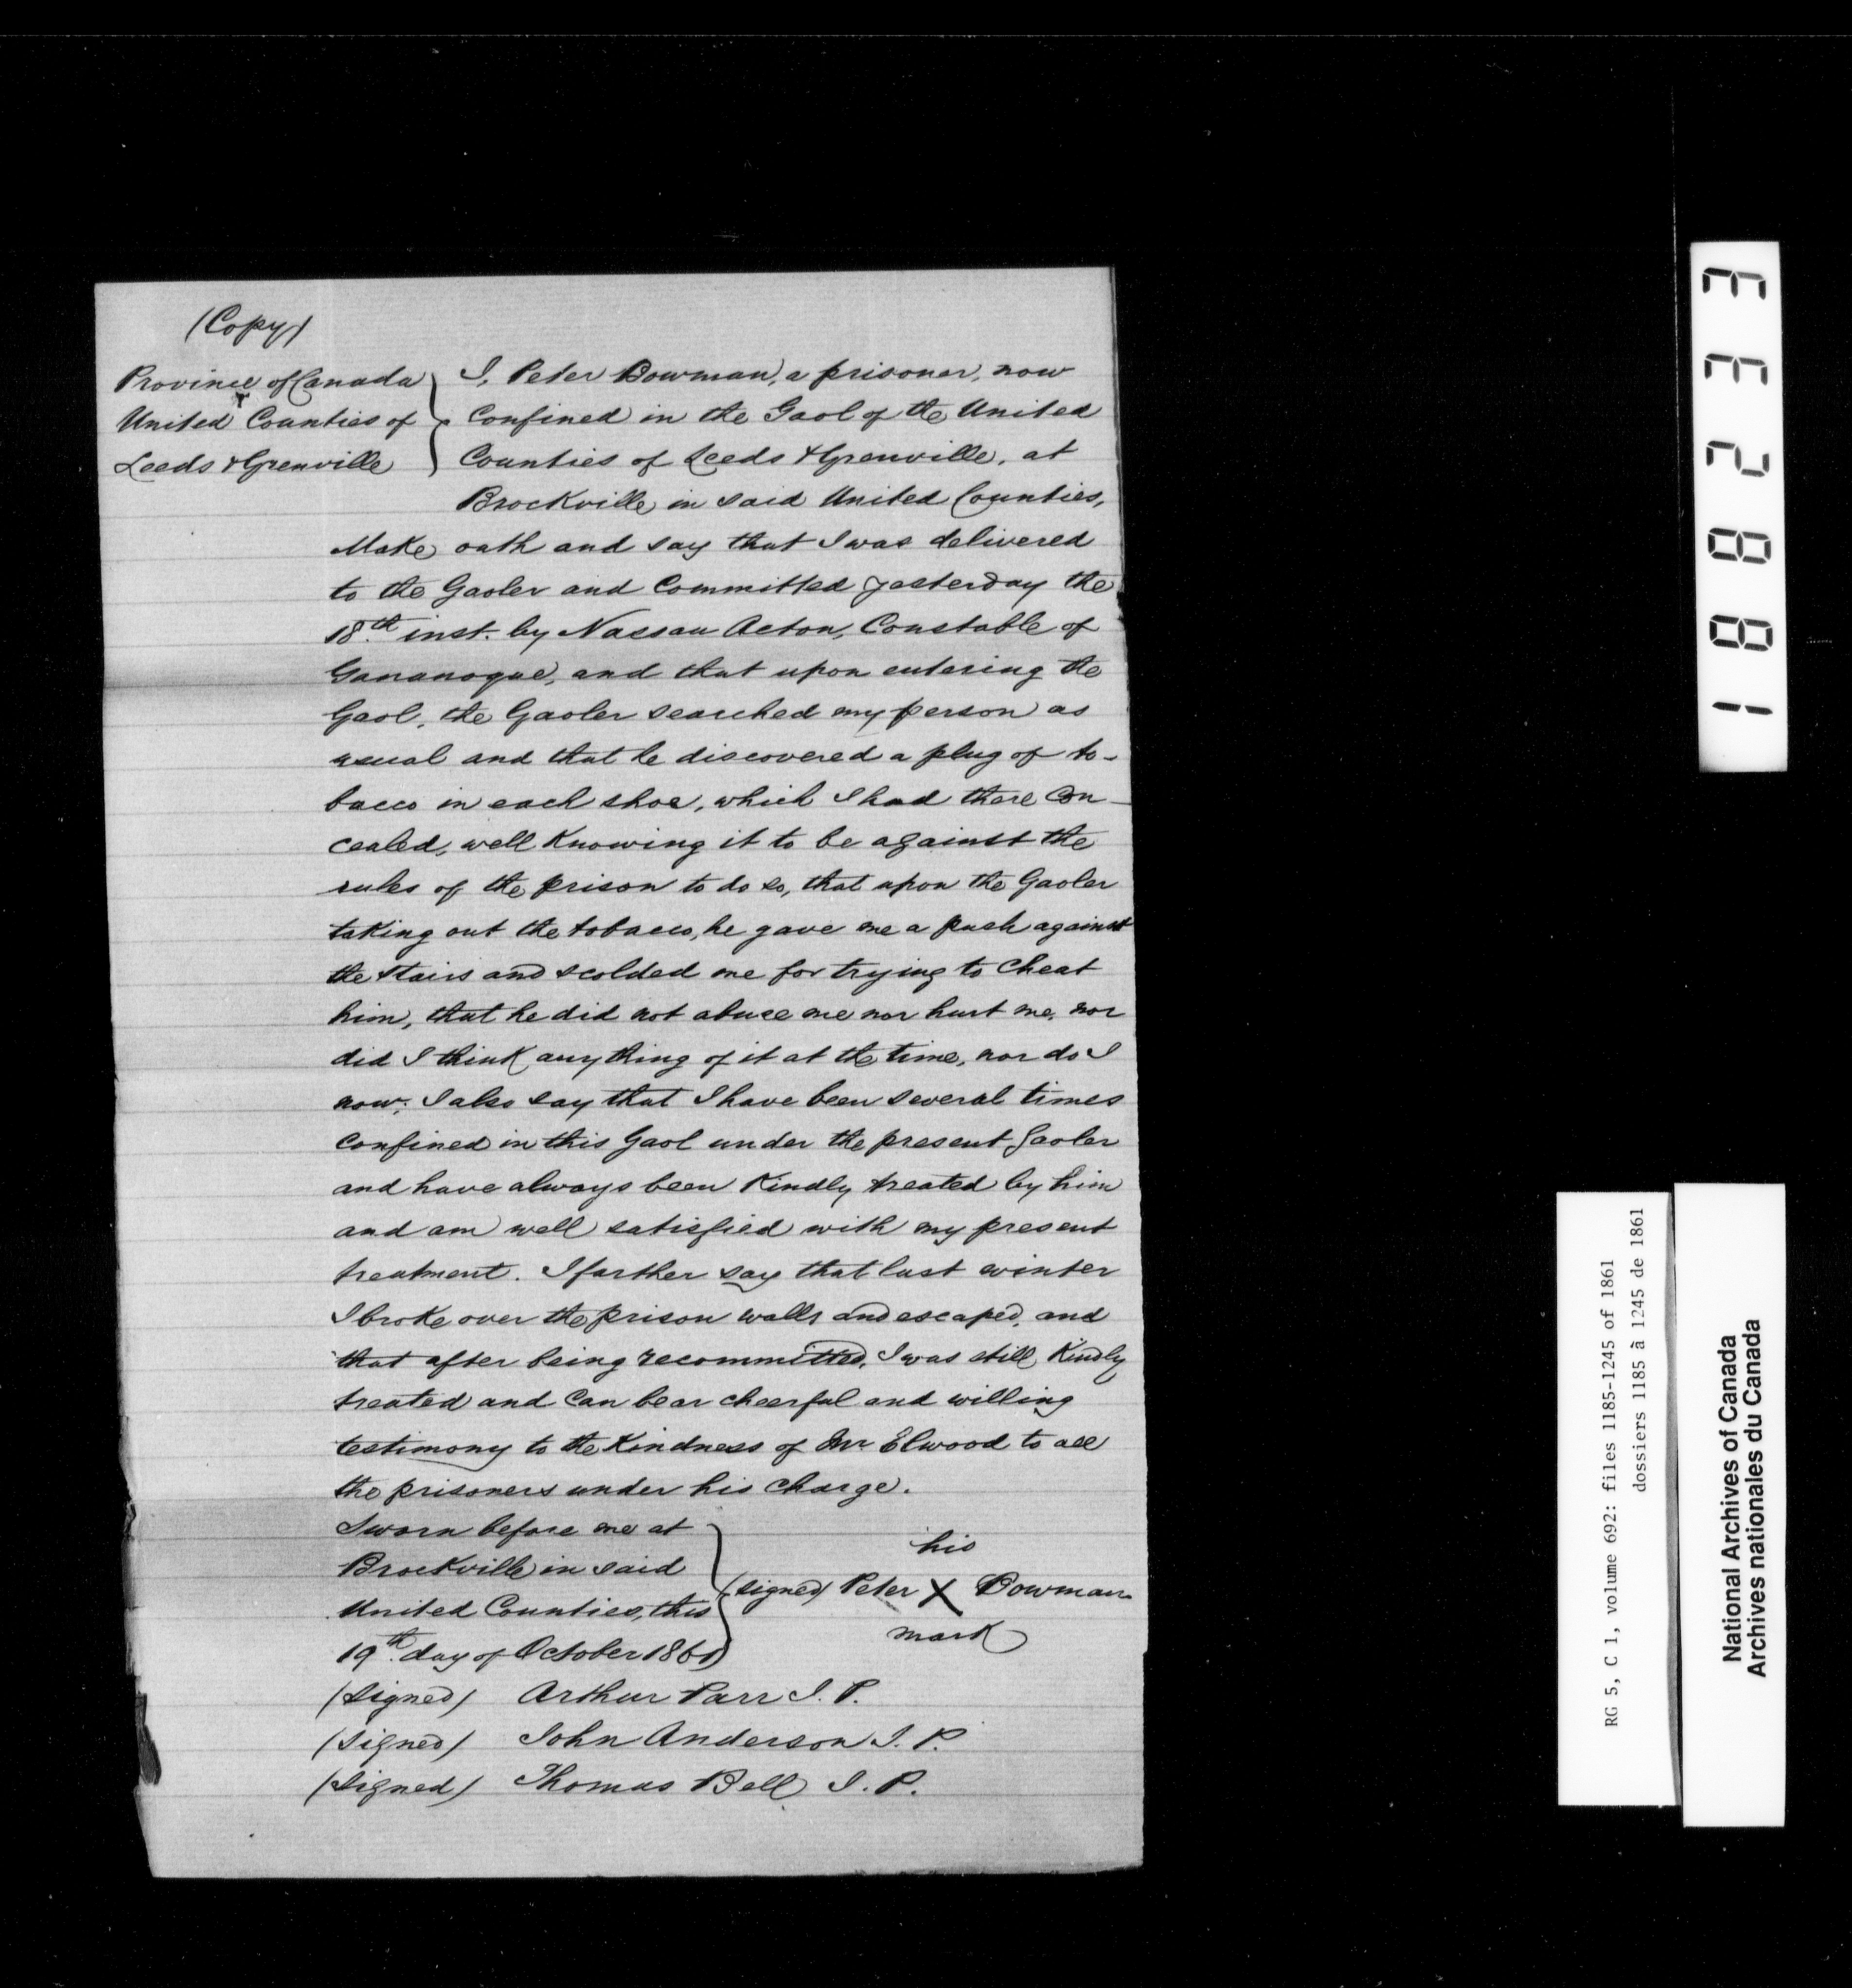 (Copy)
Province of Canada
United Counties of
Leeds & Grenville
I, Peter Bowman, a prisoner, now
Confined in the Gaol of the United
Counties of Leeds & Grenville, at
Brockville in said United Counties,
Make oath and say that I was delivered
to the Gaoler and Committed yesterday the
18th inst. by Nassau Acton, Constable of
Gananoque, and that upon entering the
Gaol, the Gaoler searched my person as
usual and that he discovered a plug of to-
bacco in each shoe, which I had there Con-
cealed, well Knowing it to be against the
rules of the prison to do so, that upon the Gaoler
taking out the tobacco, he gave me a push against
the stairs and scolded me for trying to Cheat
him, that he did not abuse me nor hurt me, nor
did I think any thing of it at the time, nor do I
now; I also say that I have been several times
Confined in this Gaol under the present Gaoler
and have always been Kindly treated by him
and am well satisfied with my present
treatment. I farther say that last winter
I broke over the prison walls and escaped, and
that after being recommitted, I was still Kindly
treated and Can bear cheerful and willing
testimony to the Kindness of Mr Elwood to all
the prisoners under his Charge.
Sworn before me at
Brockville in said
United Counties, this
19th day of October 1861
his
(signed) Peter X Bowman
mark
(Signed) Arthur Parr J. P.
(Signed) John Anderson J. P.
(Signed) Thomas Bell J. P.
18823 3
RG 5, C 1, volume 692: files 1185-1245 of 1861
dossiers 1185 à 1245 de 1861
National Archives of Canada
Archives nationales du Canada